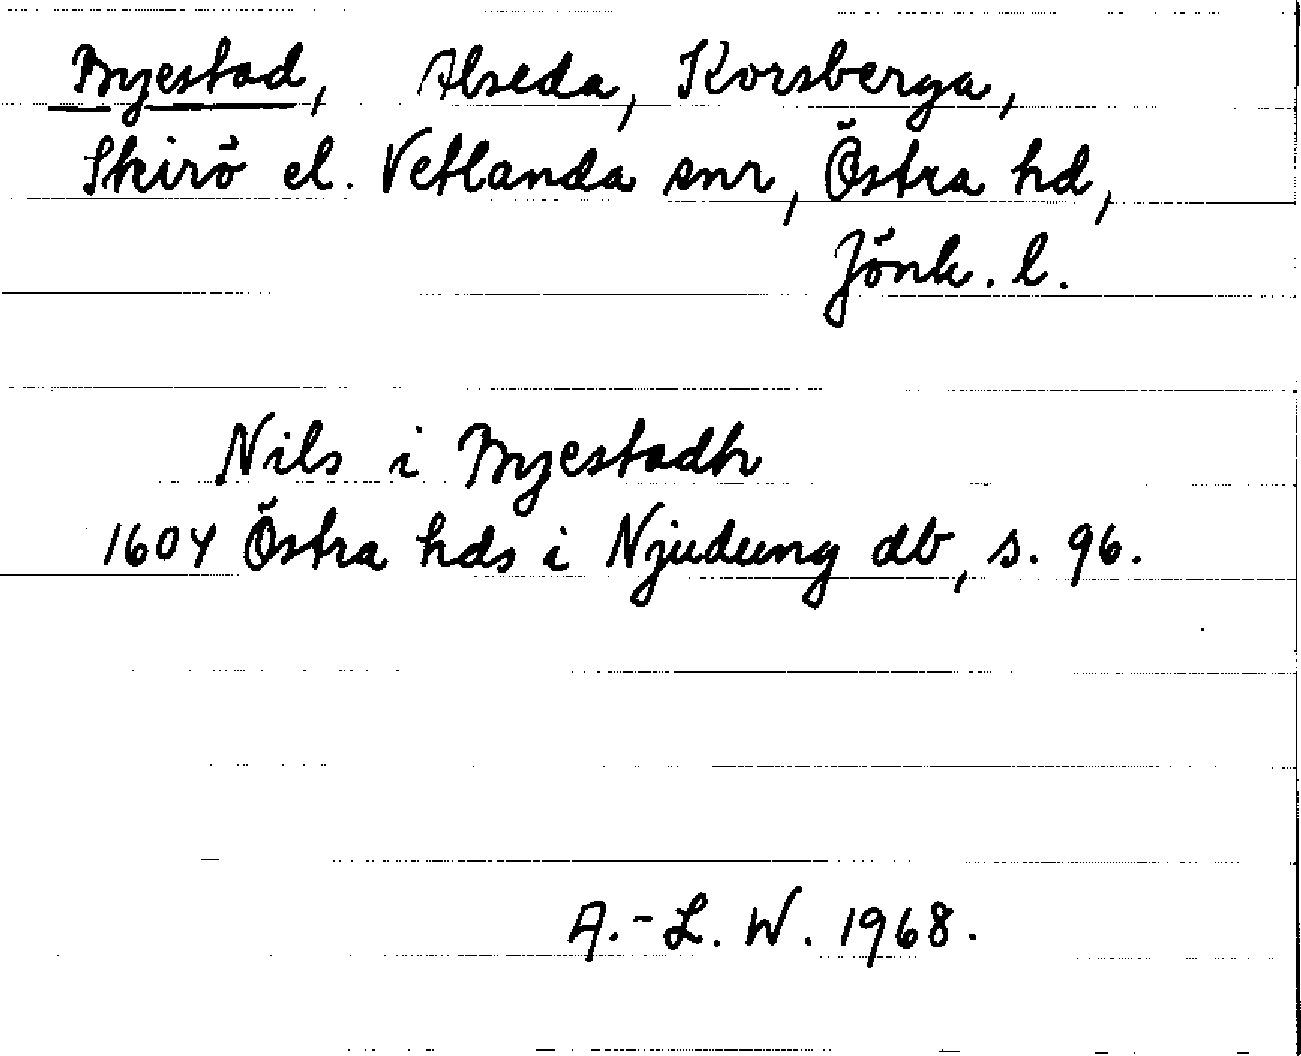 Byestad, Alseda, Korsberga,
Skirö el. Vetlanda snr, Östra hd,
Jönk. l.
Nils i Byestadh
1604 Östra hds i Njudung db, s. 96.
A.-L. W. 1968.